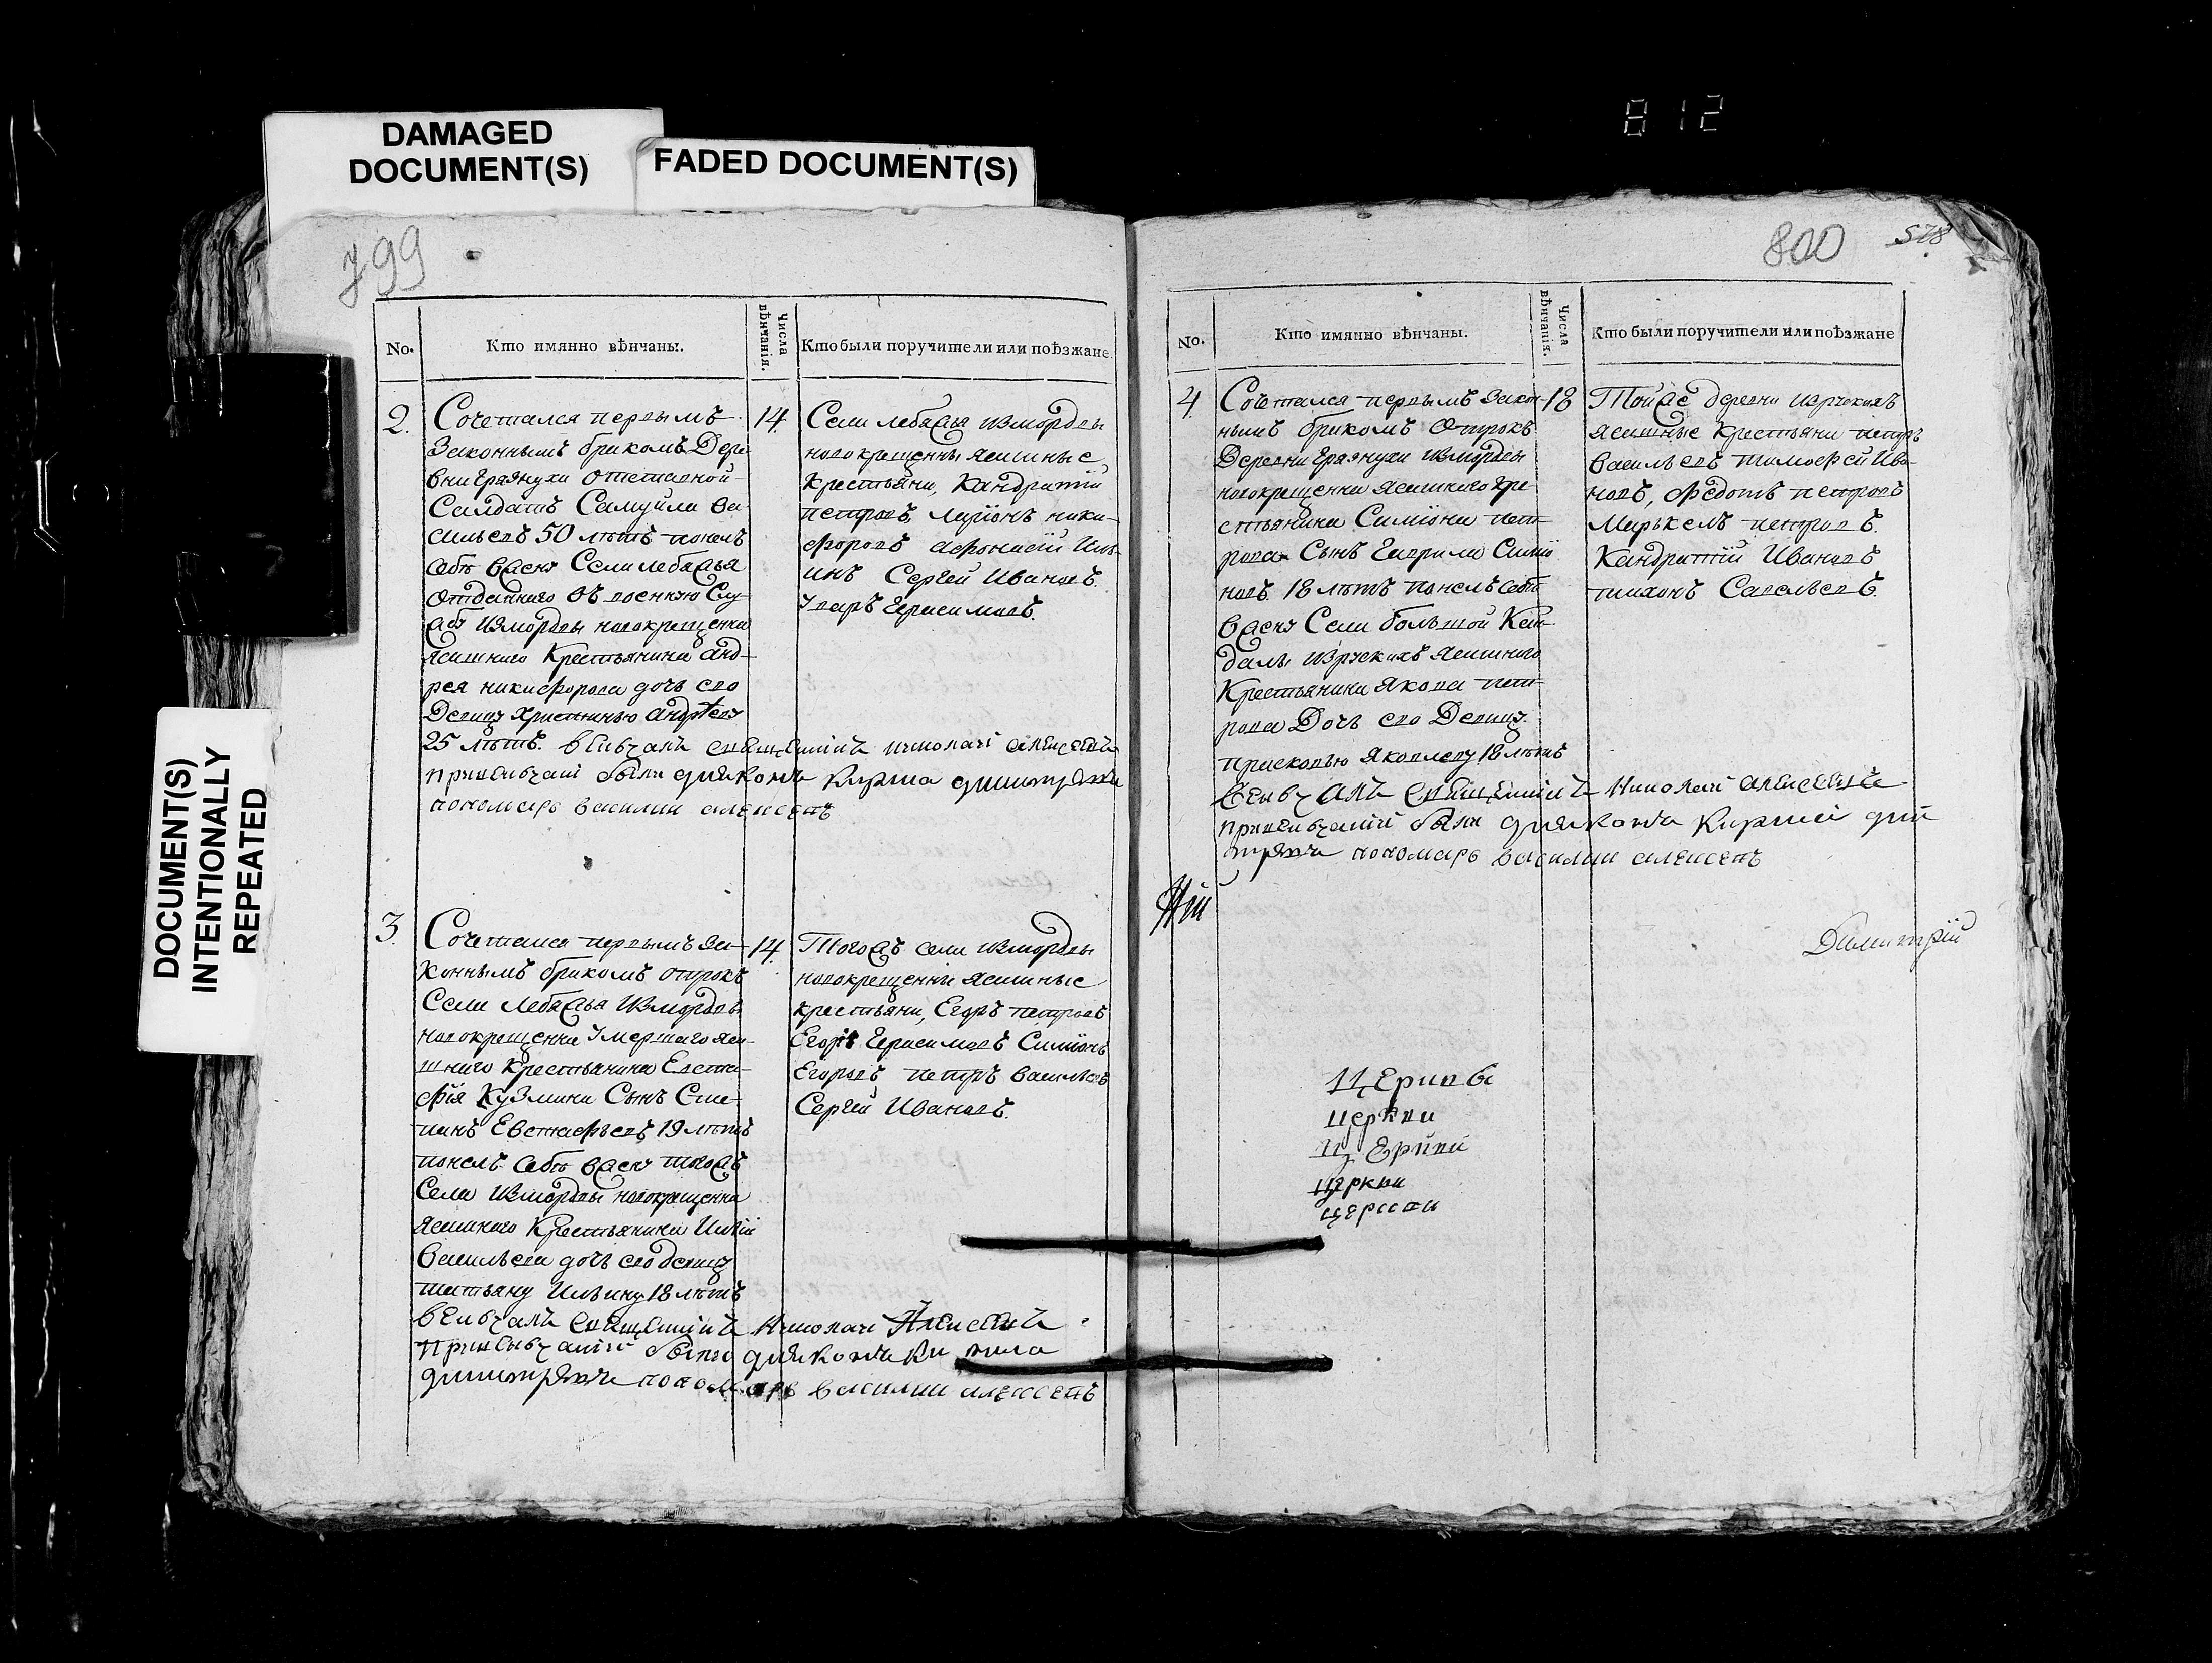 812
DAMAGED
DOCUMENT(S)
FADED DOCUMENT(S)
DOCUMENT(S)
INTENTIONALLY
REPEATED
799
No.
Кто имянно вѣнчаны.
Числа вѣнчанія.
Кто были поручители или поѣзжане.
2.
Сочетался первымъ
Законнымъ бракомъ Дере
вни Грязнухи отставной
Салдатъ Самуйла Ва
сильевъ 50 лѣтъ понелъ
себѣ въ жену Села лебяжья
отданнаго въ военную Слу
жбу измордвы новокрещенна
ясашнаго Крестьянина анд-
рея никифорова дочь ево
Девицу Христинью андрѣеву
25 лѣтъ. венчалъ священникъ николай алексеевъ
привенчаніи были дияконъ Кирила димитриевъ
пономарь василии алексеевъ
14
Села лебяжья измордвы
новокрещенны ясашные
Крестьяни, Кандратій
петровъ, Ларионъ ники-
форовъ афонасій Иль-
инъ Сергей Ивановъ.
Уваръ Герасимовъ.
3.
Сочетался первымъ за-
коннымъ бракомъ отрокъ
Села Лебяжья измордвы
новокрещенна умершаго яса-
шнаго Крестьянина Евста-
фія Кузмина Сынъ Сте-
панъ Евстафьевъ 19 лѣтъ
понелъ себѣ въ жену тогожъ
Села измордвы новокрещенна
ясашнаго Крестьянина Ильи
Васильева дочь ево девицу
татьяну Ильину 18 лѣтъ
венчалъ священникъ Николай Алексеевъ
привенчании были дияконъ Кирила
димитриевъ пономарь василии алексеевъ
14.
Тогожъ села измордвы
новокрещенны ясашные
крестьяни, Егоръ петровъ
Егоръ Герасимовъ Симионъ
Егоровъ петръ васильевъ
Сергей Ивановъ.
800
578
No.
Кто имянно вѣнчаны.
Числа вѣнчанія.
Кто были поручители или поѣзжане
4
Сочетался первымъ закон-
нымъ бракомъ Отрокъ
Деревни Грязнухи измордвы
новокрещенна ясашнаго Кре
стьянина Симиона пет-
рова Сынъ Гаврила Симио
новъ 18 лѣтъ понелъ себѣ
вжену Села большой Кан-
далы изрускихъ ясашнаго
Крестьянина Якова пет-
рова Дочь ево Девицу.
прасковью Яковлеву 18 лѣтъ
венчалъ священникъ Николай алексеевъ
привенчаніи были дияконъ Кирила дми
триевъ пономарь василии алексеевъ
18
Тойже деревни изрускихъ
ясашные Крестьяни петръ
Васильевъ тимофей Ива-
новъ, Федотъ петровъ
Маркелъ петровъ.
Кандратій Ивановъ
тихонъ Савельевъ.
Димитрій
церкви
церкви
церкви
церкви
церкви